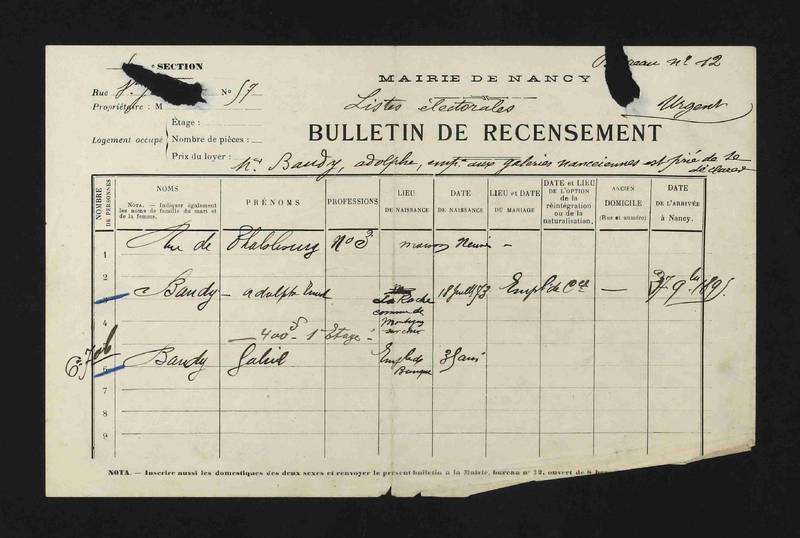 SECTION
Bureau n° 12
Rue N° 57
MAIRIE DE NANCY
Propriétaire : M
Listes électorales
Urgent
Étage :
Logement occupé Nombre de pièces :
BULLETIN DE RECENSEMENT
Prix du loyer :
Mr Baudy, adolphe, aux galeries nancéiennes est prié de le
déclarer
NOMBRE DE PERSONNES
NOMS
NOTA. — Indiquer également les noms de famille du mari et de la femme.
PRÉNOMS
PROFESSIONS
LIEU DE NAISSANCE
DATE DE NAISSANCE
LIEU et DATE DU MARIAGE
DATE et LIEU DE L'OPTION de la réintégration ou de la naturalisation.
ANCIEN DOMICILE (Rue et numéro)
DATE DE L'ARRIVÉE à Nancy.
1 Rue de Phalsbourg No 3 maison Neuve —
2
3 Baudy — adolphe La Roche commune de Empl. de —
4 400 — 1er Étage
5 Baudy Employé de Banque 3 ans
6
7
8
9
NOTA. — Inscrire aussi les domestiques des deux sexes et renvoyer le présent bulletin à la Mairie, bureau n° 12, ouvert de 8